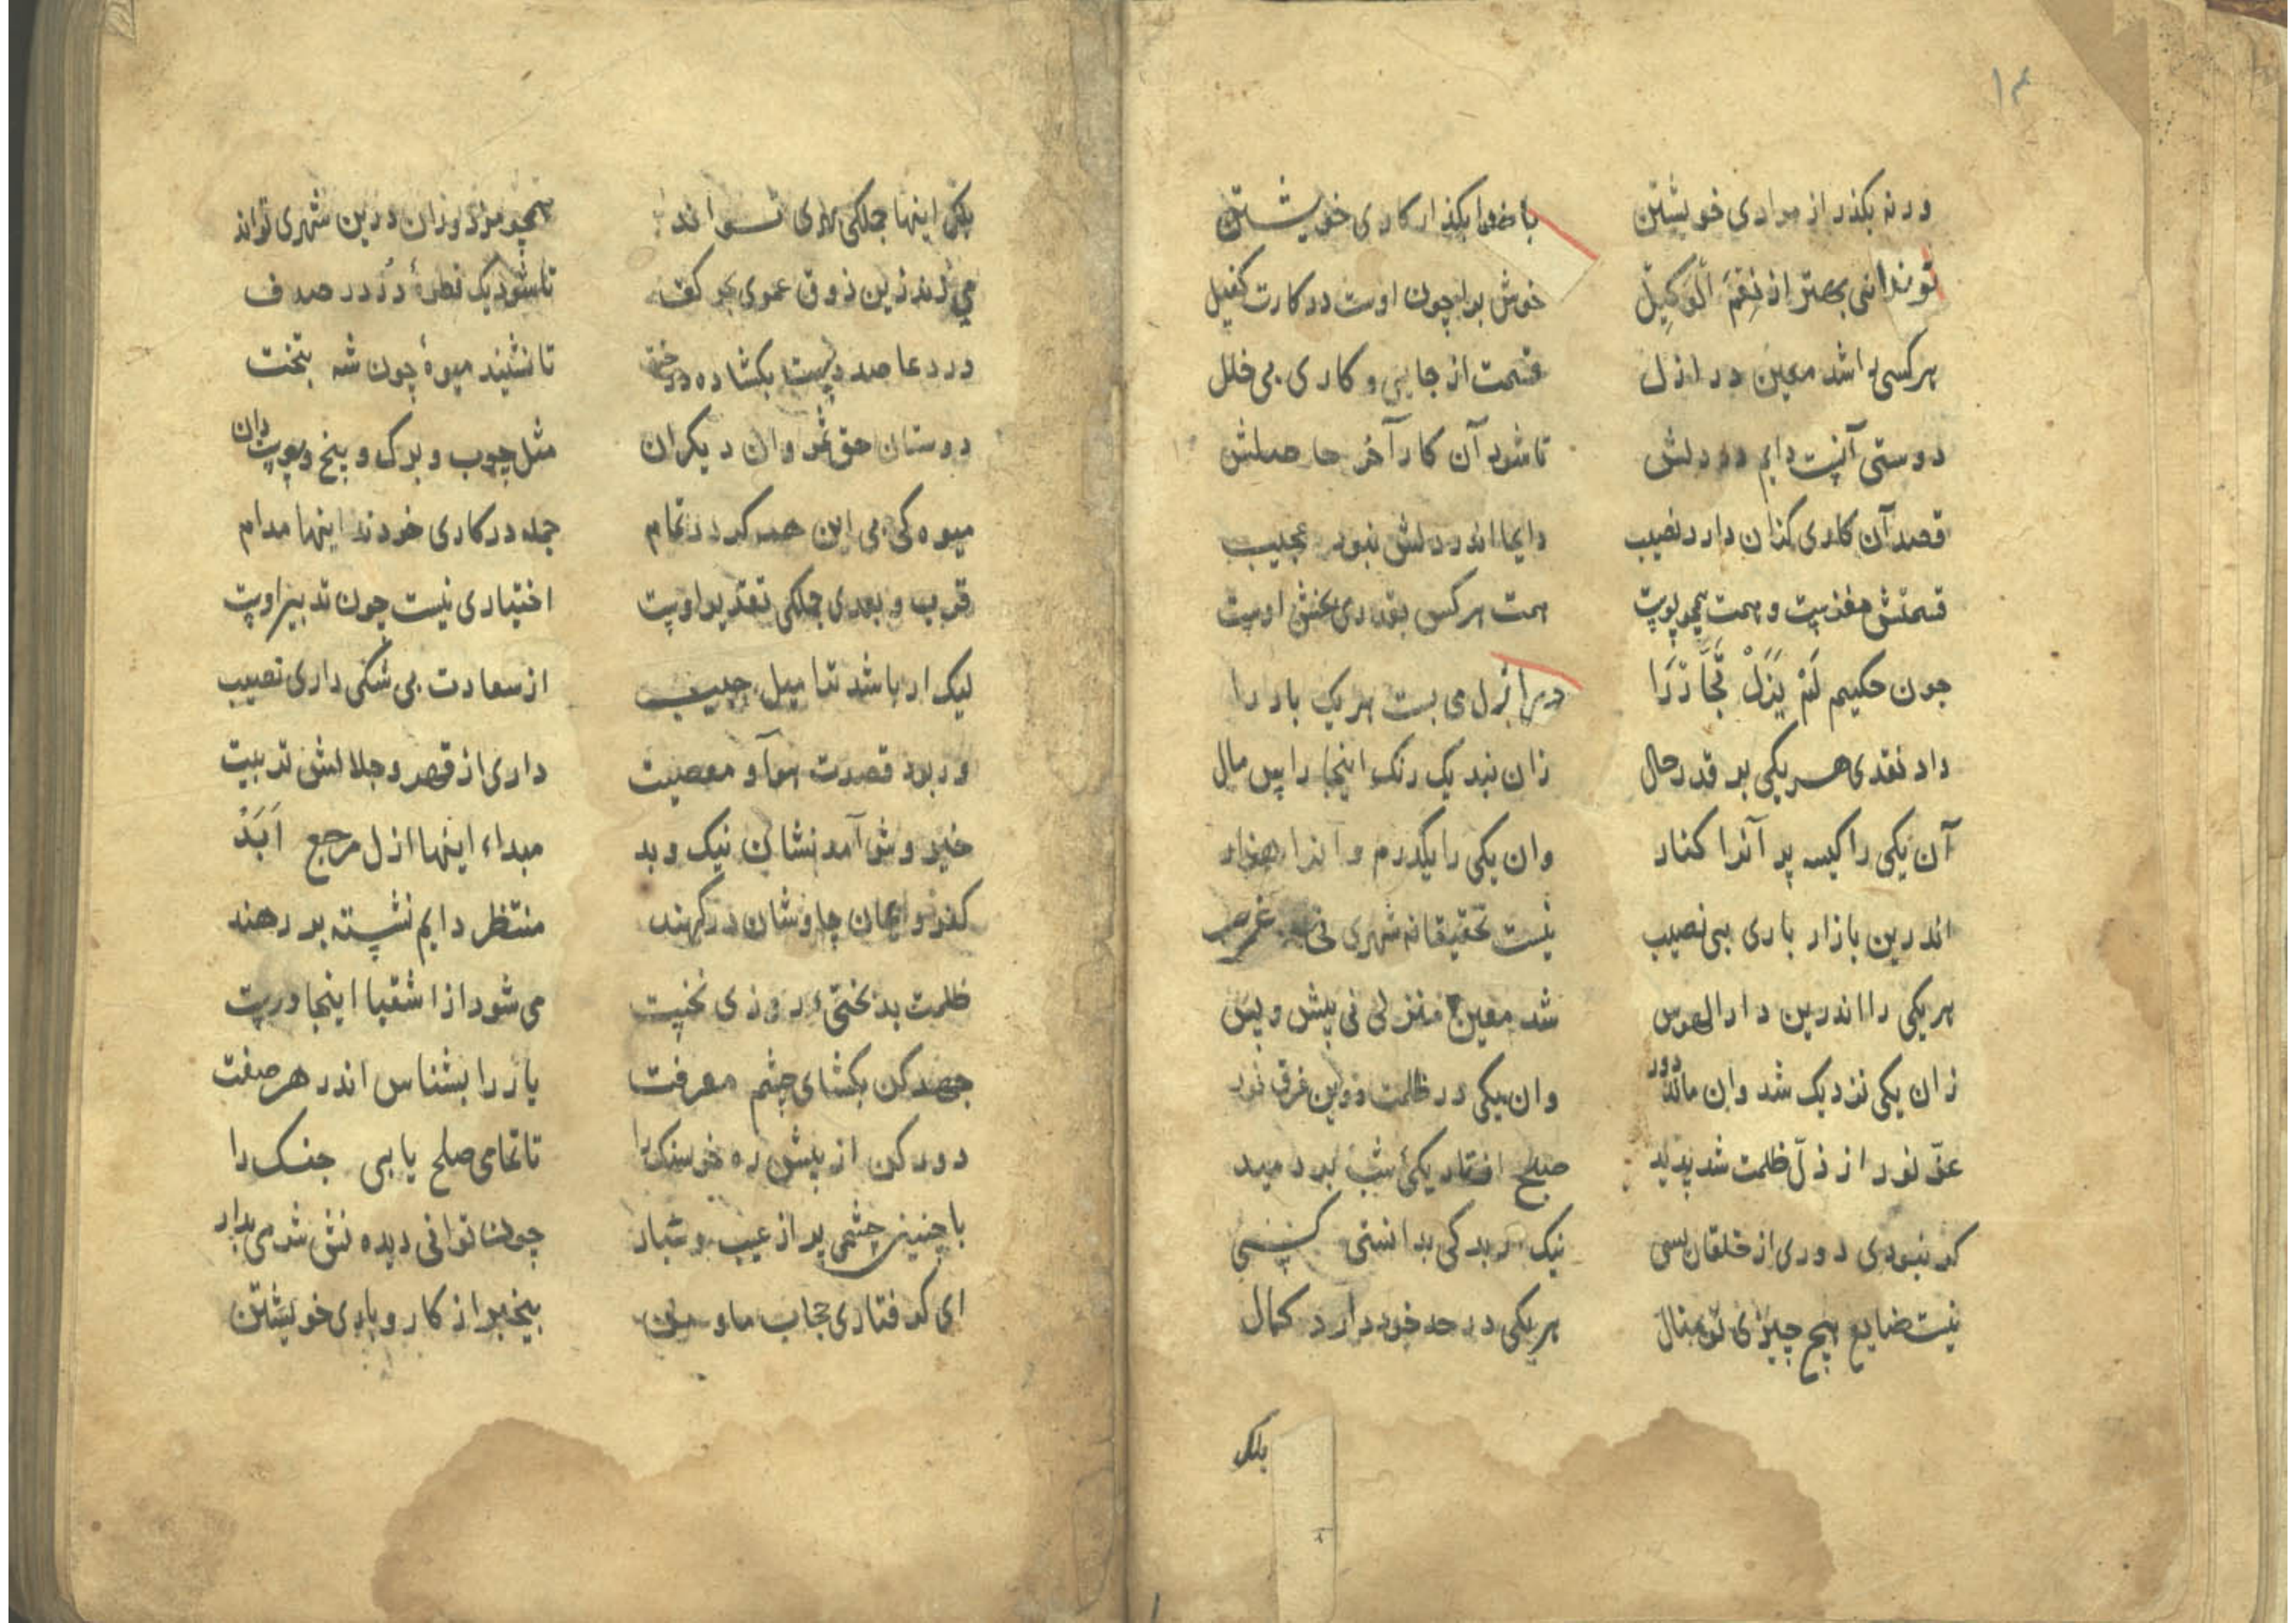 ١٤
ورنه بکذر از مرادی خویشتن با خدا بکذار کاری خویشتن
تو ندانی بهتر از نِعْمَ الْوَکِیلْ خوش برا چون اوست در کارت کفیل
هر کسی را شد معین در ازل قسمت از جایی و کاری بی خلل
دوستی آنست دایم در دلش تا شود آن کار آخر حاصلش
قصد آن کاری کزان دارد نصیب دایما اندر دلش نبود عجیب
قسمتش مغزست و همت همچو پوست همت هر کس بقدری بخشش اوست
جون حکیم لَمْ یَزَلْ تجار را در ازل می بست هر یک بار را
داد نقدی هر یکی بر قدر حال زان نبد یک رنک اینجا راس مال
آن یکی را کیسه پر آنرا کنار وان یکی را یکدرم و آنرا هزار
اندرین بازار باری بی نصیب نیست تحقیقانه شهری نی غریب
هر یکی را اندرین دار الهوس شد معین منزلی نی پیش و پس
زان یکی نزدیک شد وان ماند دور وان یکی در ظلمت و وین غرق نور
عزّ نور از ذلّ ظلمت شد پدید صبح افتاد یکی شب بردمید
کر نبودی دوری از خلقان بسی نیک از بد کی بدانستی کسی
نیست ضایع هیچ چیزی تو بنال هر یکی در حد خود دارد کمال
بلک
بلک اینها جملکی بهری تواند همچو مزدوران درین شهری تواند
می زند زین ذوق عمری بحر کف تا شود یک قطرهٔ دُر در صدف
در دعا صد دست بکشاده درخت تا نشیند میوهٔ چون شه بتخت
دوستان حق ثمر وان دیکران مثل چوب و برک و بیخ و پوست دان
میوه کی بی این همه کردد تمام جمله در کاری خودند اینها مدام
قرب و بعدی جملکی تقدیر اوست اختیاری نیست چون تدبیر اوست
لیک ار باشد ترا میل حبیب از سعادت بی شکی داری نصیب
ور بود قصدت هوا و معصیت داری از قهر و جلالش تربیت
خیر و شر آمد نشان نیک و بد مبداء اینها ازل مرجع اَبَدْ
کفر و ایمان چاوشان درکهند منتظر دایم نشسته بر رهند
ظلمت بدبختیٔ روزی نخست می شود از اشقیا اینجا درست
جهد کن بکشای چشم معرفت یار را بشناس اندر هر صفت
دور کن از پیش ره خرسنک را تا تمامی صلح یابی جنک را
با چنین چشمی پر از عیب و غبار چون توانی دیدنش شرمی بدار
ای کرفتاری حجاب ما و من بیخبر از کار و باری خویشتن